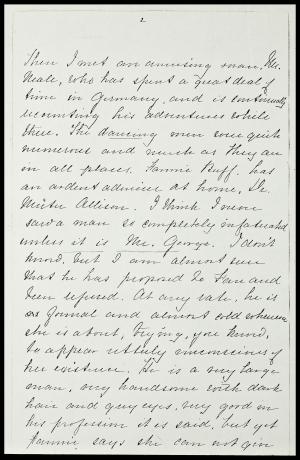 2
Then I met an amusing man, Mr.
Neale, who has spent a great deal of
time in Germany, and is continually
recounting his adventures while
there. The dancing men were quite
numerous and much as they are
in all places. Fannie Buff. has
an ardent admirer at home, Dr.
Mister Allison. I think I never
saw a man so completely infatuated
unless it is Mr. George. I don't
know, but I am almost sure
that he has proposed to Fan and
been refused. At any rate, he is
as formal and almost cold whenever
she is about, trying, you know,
to appear utterly unconscious of
her existence. He is a very large
man, very handsome with dark
hair and grey eyes, very good in
his profession it is said, but yet
Fannie says she can not give